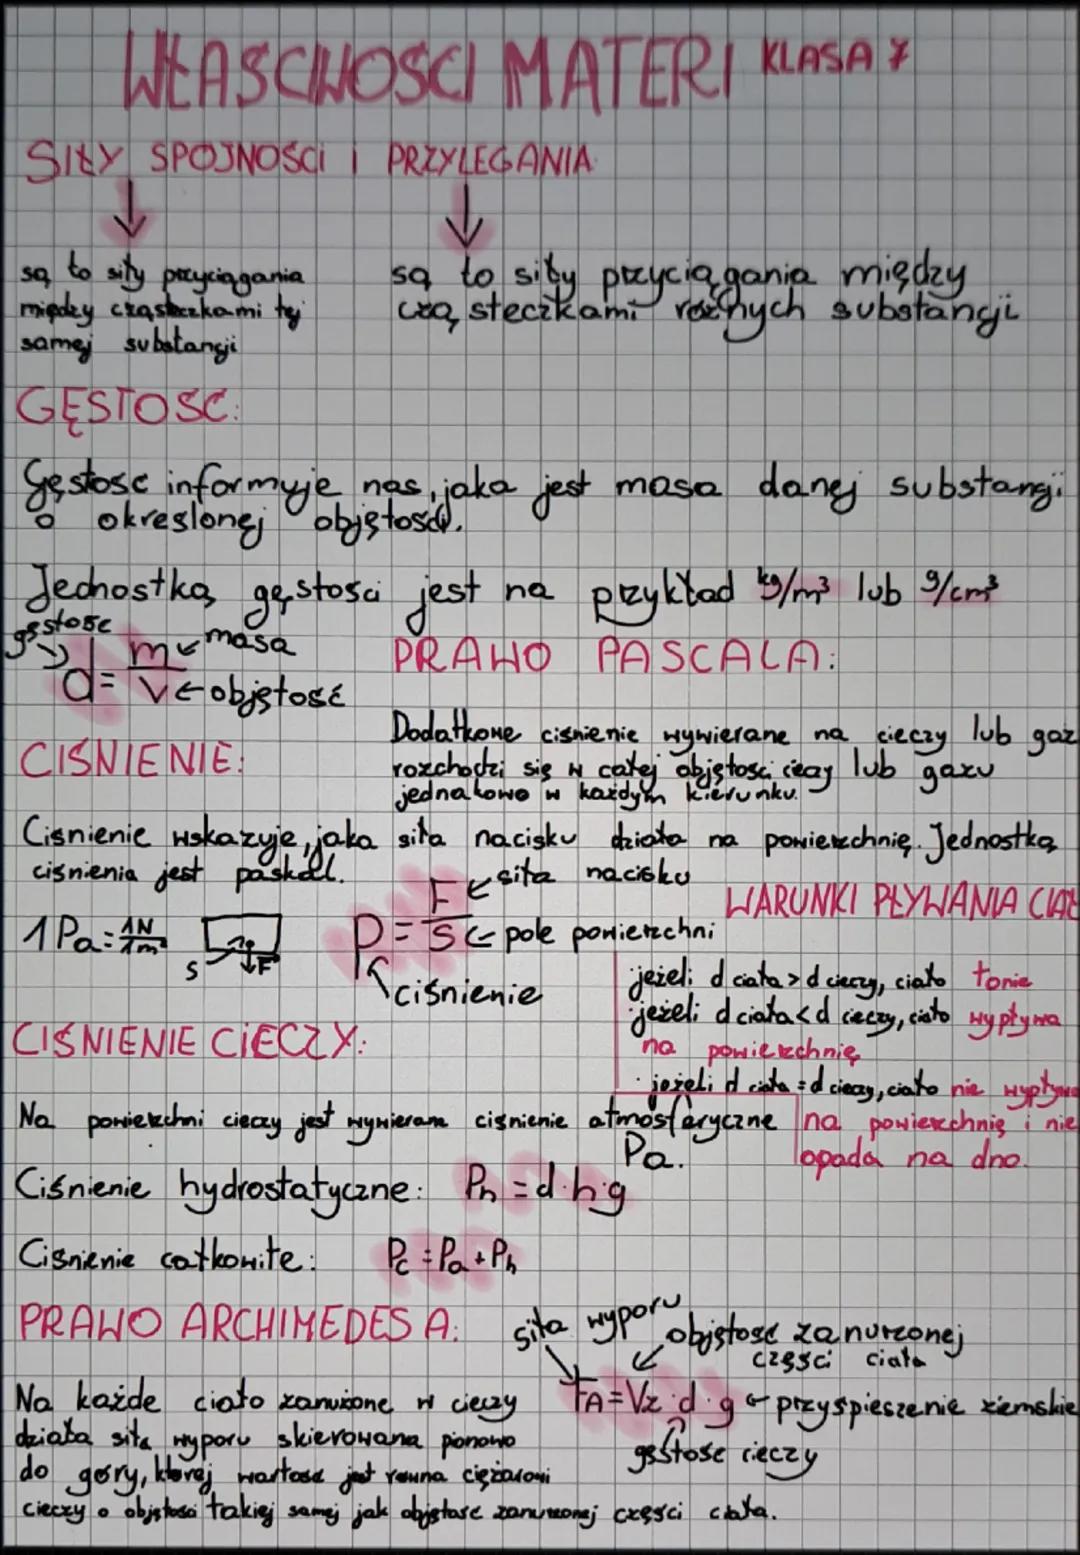 WŁASCIWOSCI MATERI KLASA 7
SIŁY SPOJNOŚCI I PRZYLEGANIA
są to siły przyciągania
między cząsteczkami tej
samej substancji
są to siły przyciągania między
cząsteczkami różnych substancji
GĘSTOSC:
Gęstosc informuje nas, jaka jest masa danej substancji
o okreslonej objętości.
Jednostką gęstosci jest na przykład kg/m³ lub g/cm³
gęstosc
masa
d = m/V
objętość
PRAWO PASCALA:
Dodatkowe ciśnienie wywierane na cieczy lub gaz
rozchodzi się w całej objętosci cieczy lub gazu
jednakowo w każdym kierunku.
CIŚNIENIE:
Cisnienie wskazuje, jaka siła nacisku działa na powierzchnię. Jednostką
cisnienia jest paskal.
1 Pa = 1N/1m²
S F
p = F/S
siła nacisku
pole powierzchni
ciśnienie
WARUNKI PŁYWANIA CIAŁ
jeżeli d ciała > d cieczy, ciało tonie
jeżeli d ciała < d cieczy, ciało wypływa
na powierzchnię
· jeżeli d ciała = d cieczy, ciało nie wypływa
na powierzchnię i nie
opada na dno.
CIŚNIENIE CIECZY:
Na powierzchni cieczy jest wywierane ciśnienie atmosferyczne
Pa.
Ciśnienie hydrostatyczne: Ph = d·h·g
Cisnienie całkowite: Pc = Pa + Ph
PRAWO ARCHIMEDESA:
siła wyporu
objętosc zanurzonej
częsci ciała
FA = Vz · d · g
przyspieszenie ziemskie
gęstosc cieczy
Na każde ciało zanurzone w cieczy
działa siła wyporu skierowana pionowo
do gory, ktorej wartosc jest rowna ciężarowi
cieczy o objętosci takiej samej jak objętosc zanurzonej częsci ciała.